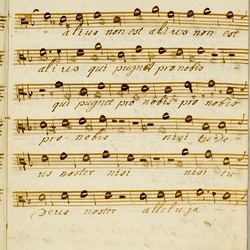 alius non est alius non est
alius qui pugnet pro nobis
qui pugnet pro nobis pro nobis
pro nobis nisi tu De
us noster nisi nisi tu
Deus noster alleluja